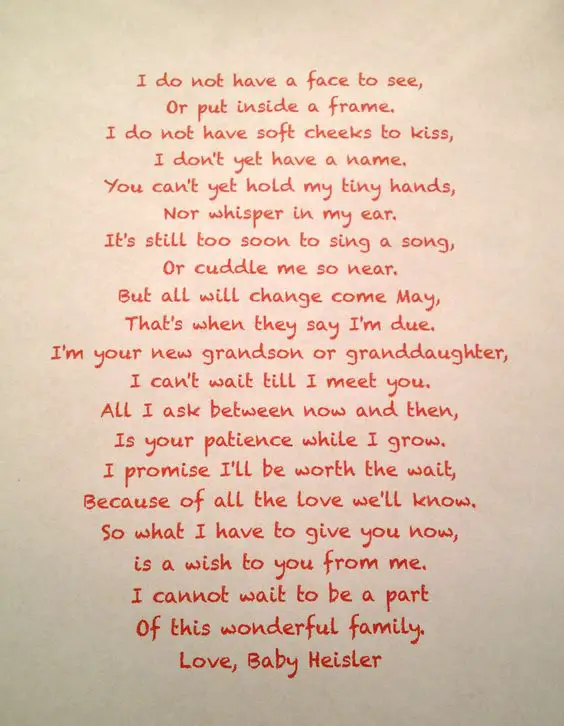 I do not have a face to see,
Or put inside a frame.
I do not have soft cheeks to kiss,
I don't yet have a name.
You can't yet hold my tiny hands,
Nor whisper in my ear.
It's still too soon to sing a song,
Or cuddle me so near.
But all will change come May,
That's when they say I'm due.
I'm your new grandson or granddaughter,
I can't wait till I meet you.
All I ask between now and then,
Is your patience while I grow.
I promise I'll be worth the wait,
Because of all the love we'll know.
So what I have to give you now,
is a wish to you from me.
I cannot wait to be a part
Of this wonderful family.
Love, Baby Heisler